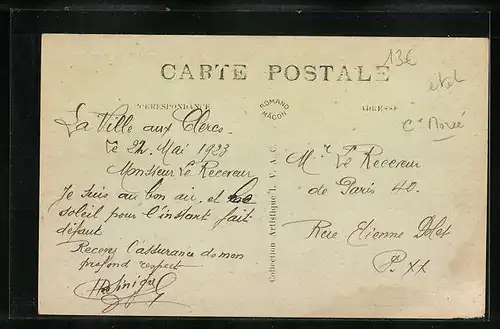 13€
CARTE POSTALE
CORRESPONDANCE
ROMAND
MACON
ADRESSE
La Ville aux Clercs
Le 24 Mai 1923
Monsieur Le Receveur
Je suis au bon air. et
soleil pour l'instant fait
défaut.
Recevez l'assurance de mon
profond respect
Collection Artistique L. V. A. C.
Mr Le Receveur
de Paris 40.
Rue Etienne Dolet
P. XX